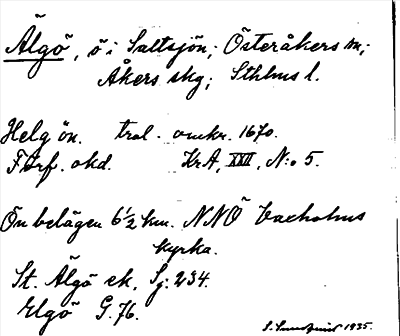 Älgö, ö i Saltsjön; Österåkers sn;
Åkers skg; Sthlms l.
Helgön. trol. omkr. 1670.
Förf. okd. KrA, XXII, N:o 5.
Ön belägen 6 1/2 km. NNÖ Vaxholms
kyrka.
St. Älgö ek, Sj. 234.
Elgö G. 76.
1935.